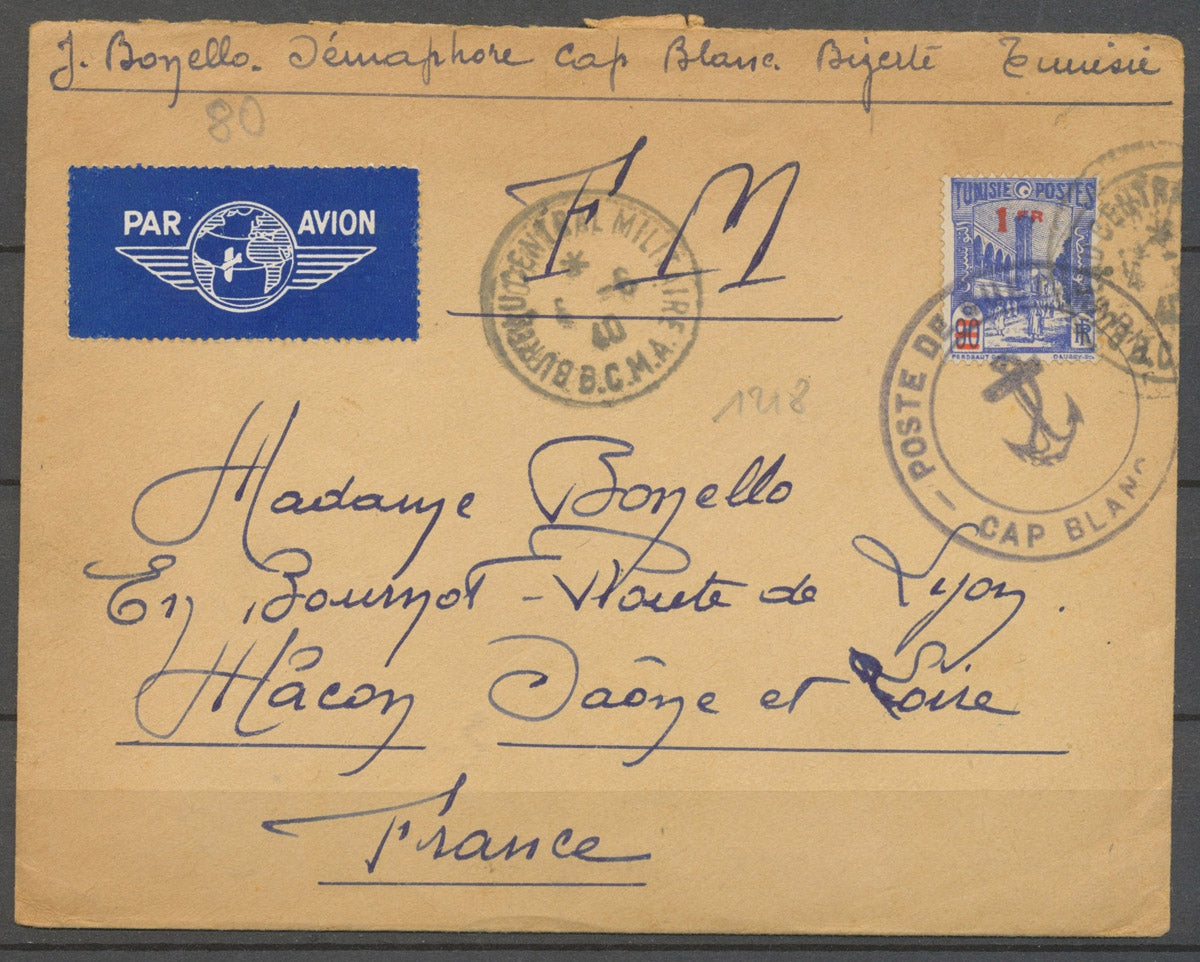 J. Bonello. Sémaphore Cap Blanc Bizerte Tunisie
80
PAR AVION
F M
BUREAU CENTRAL MILITAIRE
* 40
B.C.M.A.
TUNISIE POSTES
1 FR
90
RF
CENTRAL
POSTE DE
CAP BLANC
1218
Madame Bonello
En Bournot - Route de Lyon.
Mâcon Saône et Loire
France